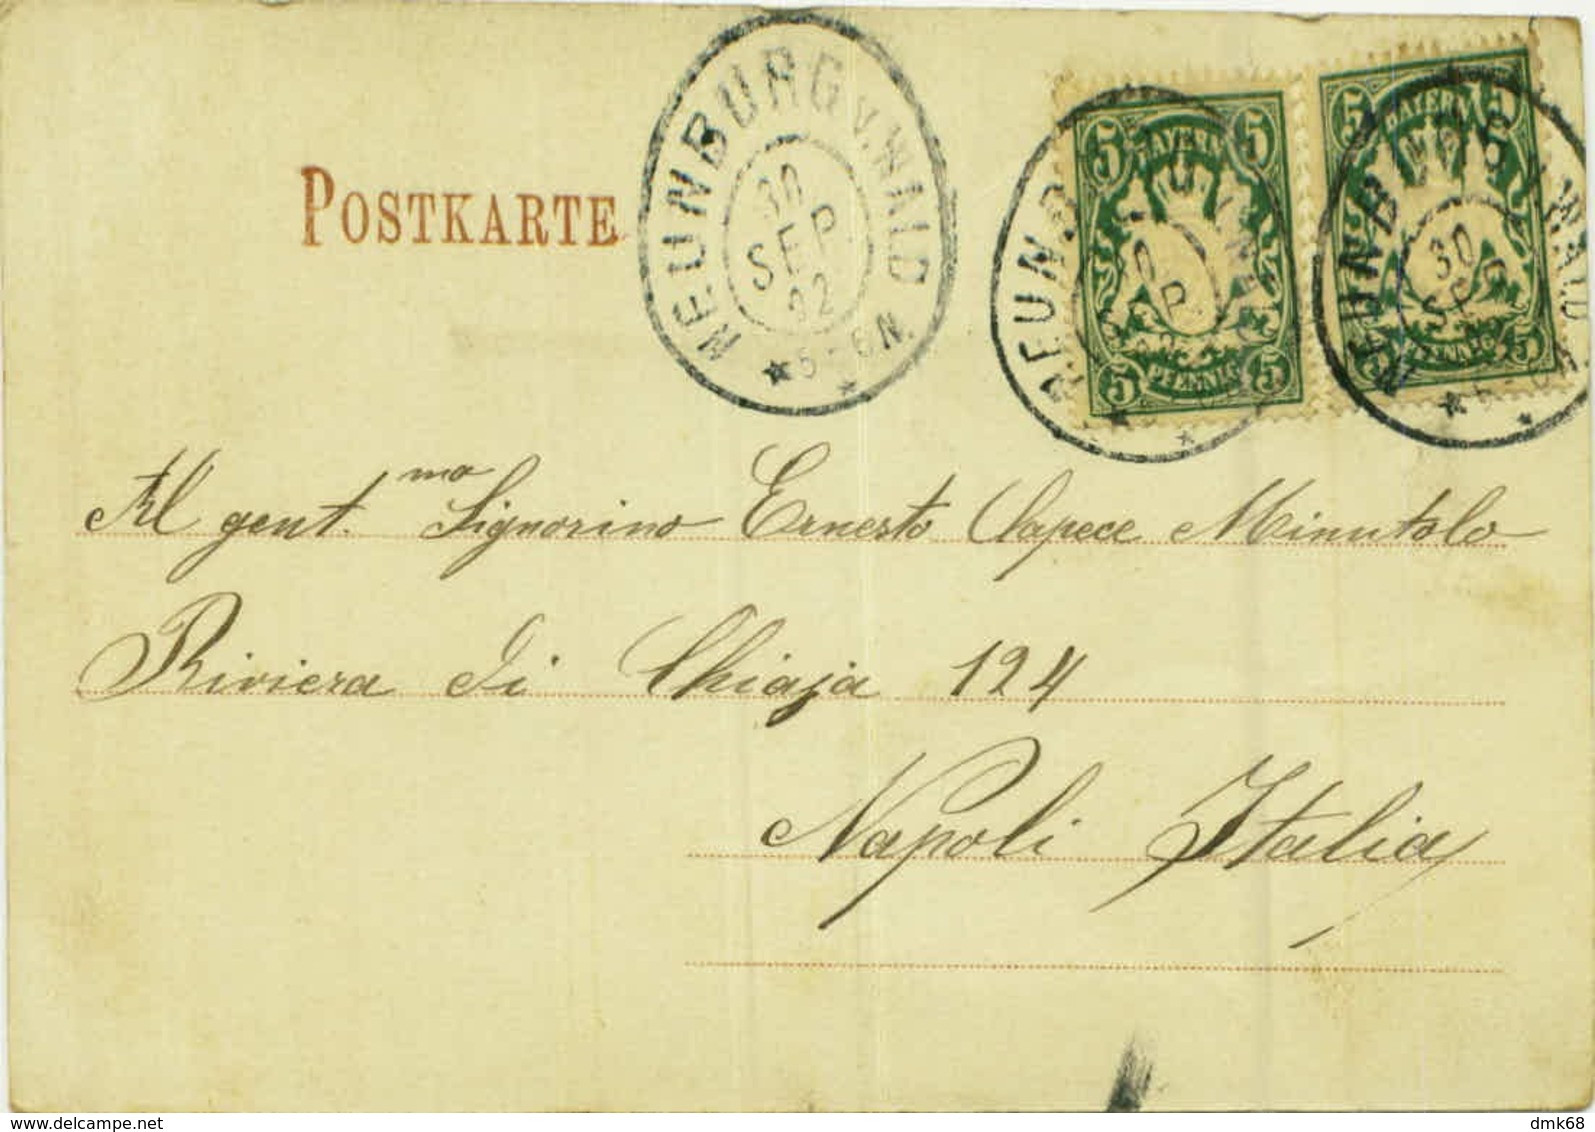 POSTKARTE
NEUNBURG v. WALD
30
SEP
02
5-6 N.
5 BAYERN 5
5 PFENNIG 5
5 BAYERN 5
PFENNIG 5
30
SEP
Al gent.mo Signorino Ernesto Capece Minutolo
Riviera di Chiaja 124
Napoli Italia
www.delcampe.net
dmk68